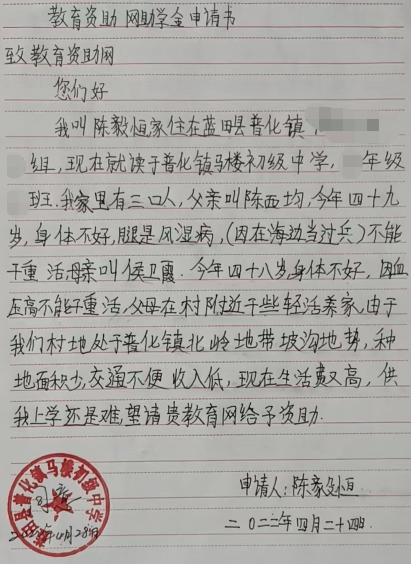 教育资助网助学金申请书
致教育资助网
您们好
我叫陈毅恒家住在蓝田县普化镇,
组,现在就读于普化镇马楼初级中学,年级
班.我家里有三口人,父亲叫陈西均,今年四十九
岁,身体不好,腿是风湿病,(因在海边当过兵)不能
干重活母亲叫侯卫霞.今年四十八岁身体不好,因血
压高不能干重活,父母在村附近干些轻活养家,由于
我们村地处于普化镇北岭地带坡沟地势,种
地面积少,交通不便收入低,现在生活费又高,供
我上学还是难,望请贵教育网给予资助.
申请人:陈毅恒
二0二二年四月二十四.
蓝田县普化镇马楼初级中学
2022年4月28日